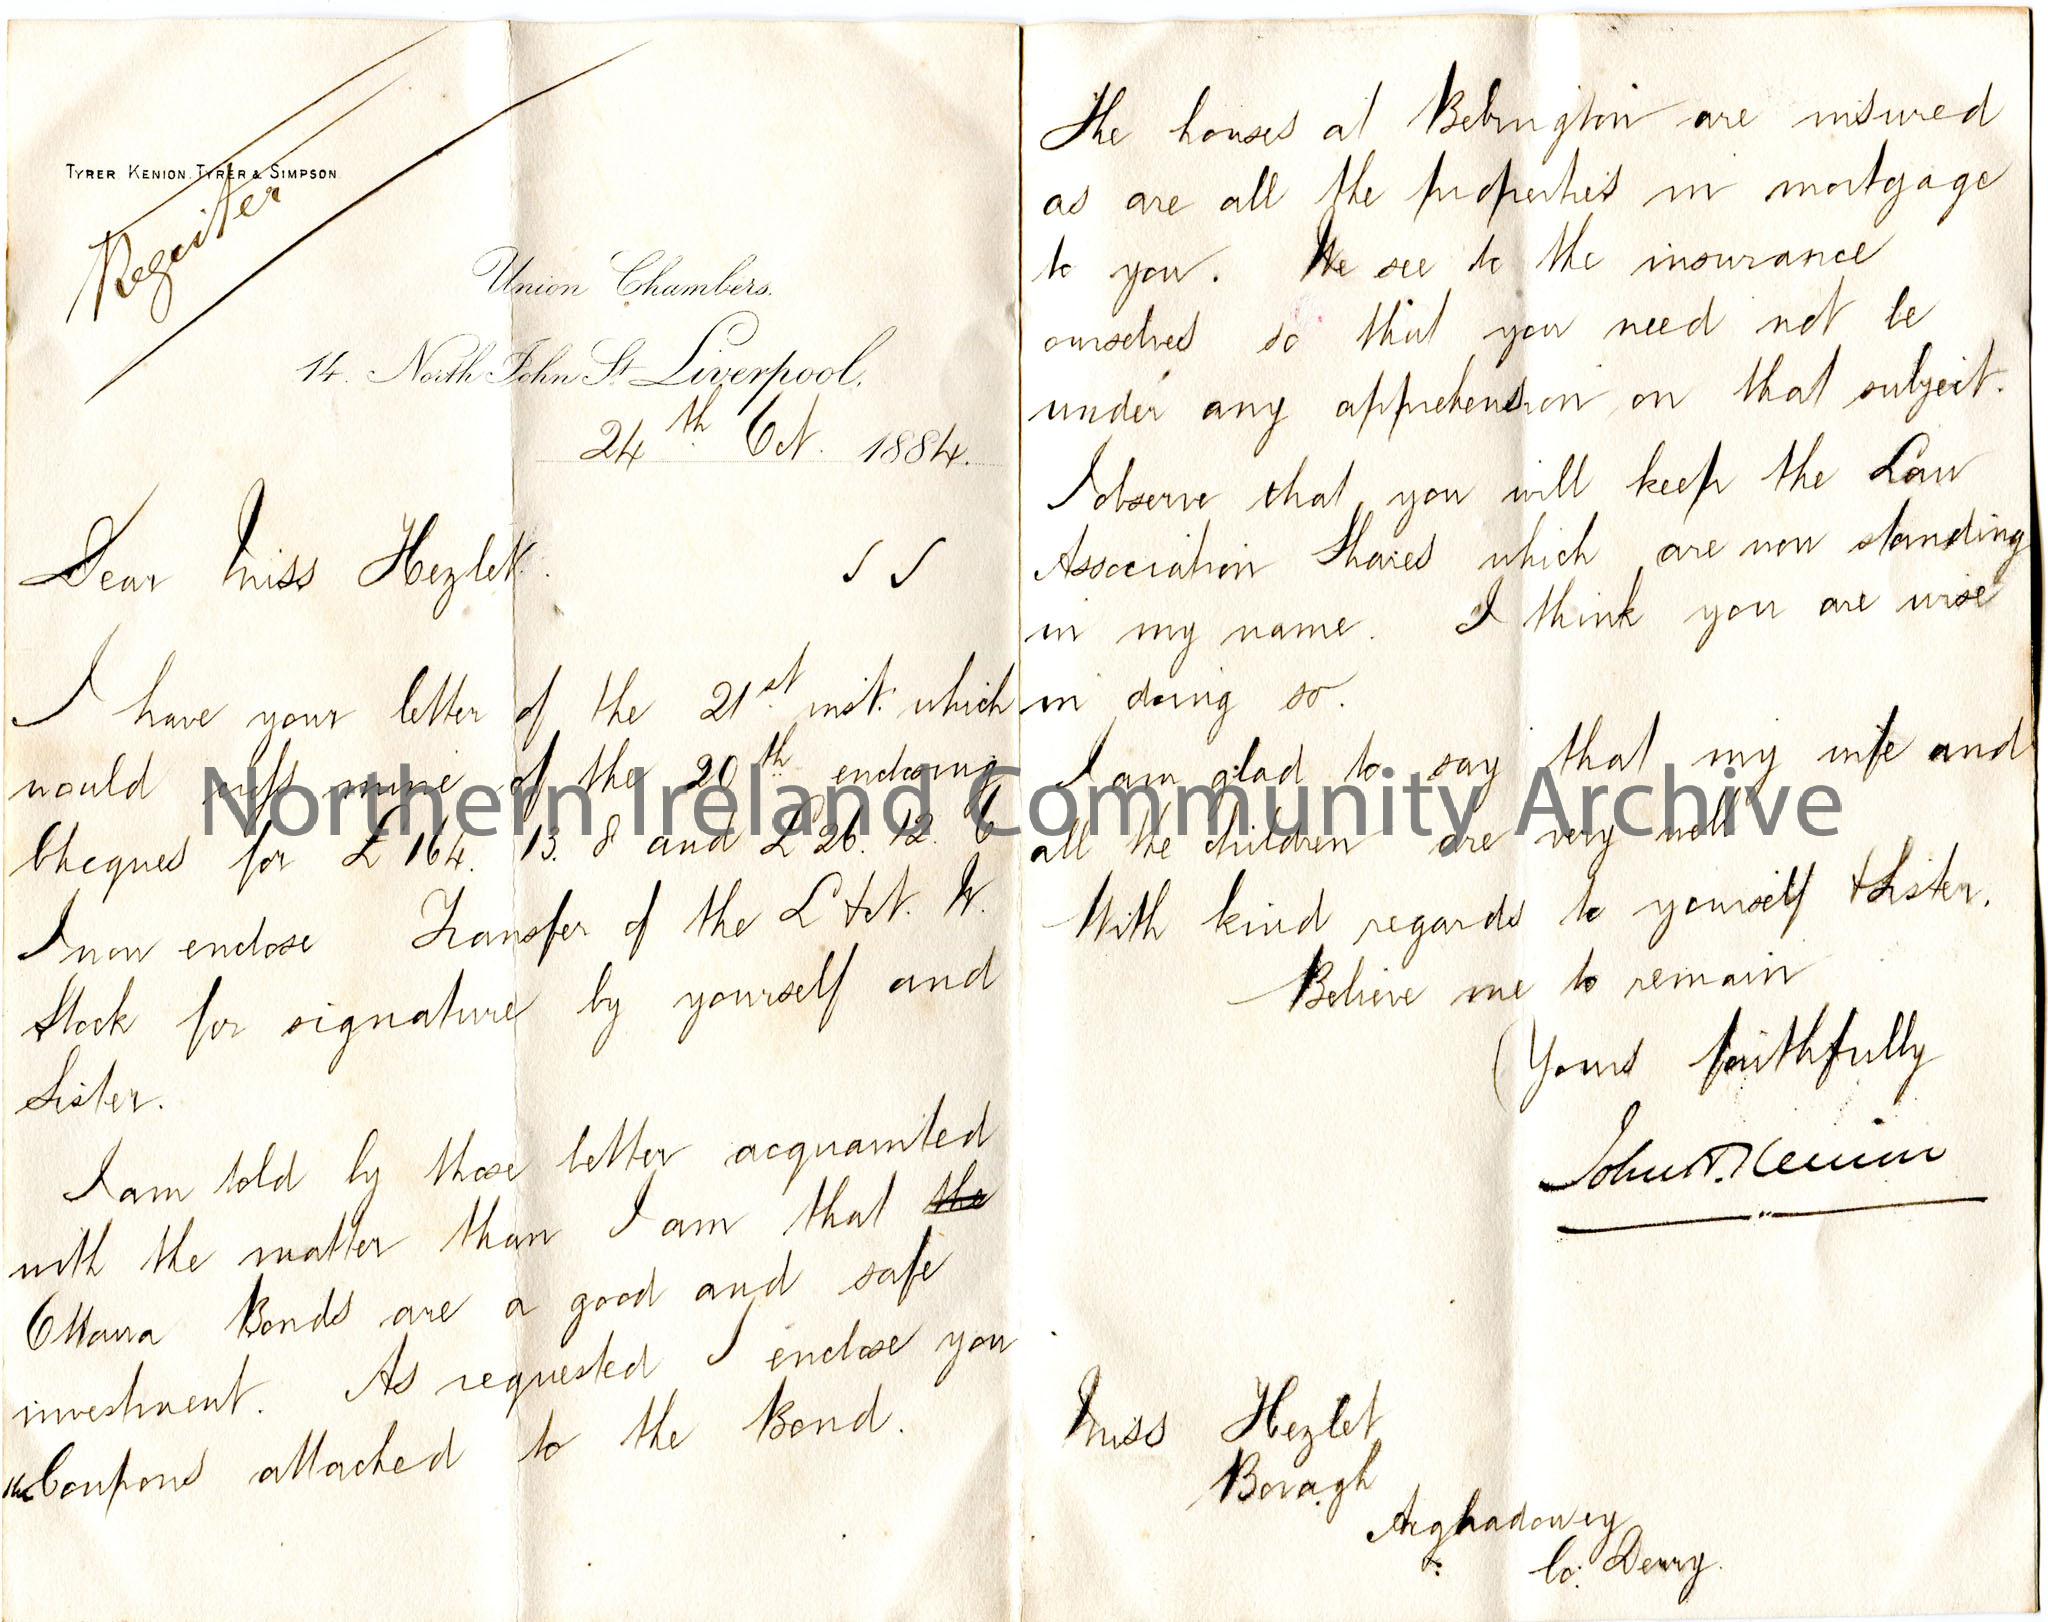 TYRER KENION. TYRER & SIMPSON.
Register
Union Chambers.
14. North John St. Liverpool,
24th Oct. 1884.
Dear Miss Hezlet.
I have your letter of the 21st. inst. which
would mine of the 20th enclosing
Cheques for £164. 13. 8 and £26. 12. 6
I now enclose Transfer of the L & N. W.
Stock for signature by yourself and
Sister.
I am told by those better acquainted
with the matter than I am that the
Ottawa Bonds are a good and safe
investment. As requested I enclose you
the Coupons attached to the Bond.
The houses at Bebington are insured
as are all the properties in mortgage
to you. We see to the insurance
ourselves so that you need not be
under any apprehension on that subject.
I observe that you will keep the Law
Association Shares which are now standing
in my name. I think you are wise
in doing so.
I am glad to say that my wife and
all the children are very well
With kind regards to yourself & Sister.
Believe me to remain
Yours faithfully
John Kenion
Miss Hezlet
Bovagh
Arghadowey
Co: Derry.
Northern Ireland Community Archive